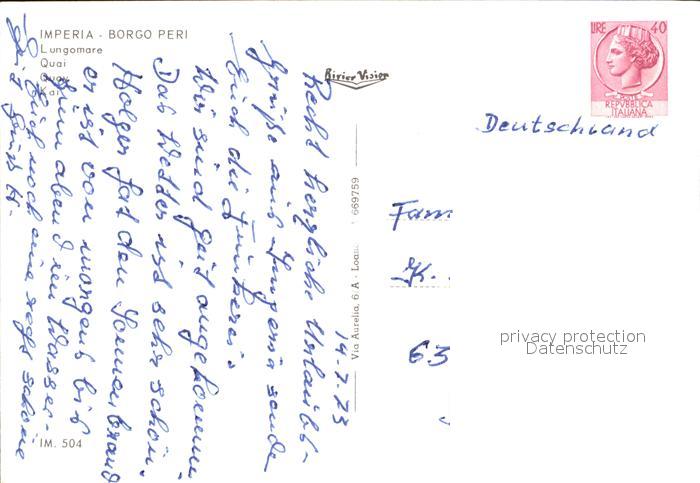 IMPERIA - BORGO PERI
Lungomare
Quai
Quay
Kai
Rivier Vision
LIRE 40
POSTE
REPVBBLICA
ITALIANA
Deutschland
Fam
K.
63
privacy protection
Datenschutz
Via Aurelia, 6 A - Loano
669759
IM. 504
14-7-73
Recht herzliche Urlaubs-
Grüße aus Imperia sende
Euch die
Wir sind gut angekommen
Das Wetter ist sehr schön.
Holger hat den Sonnenbrand
er ist von morgens bis
zum abend im Wasser-
Euch noch eine recht schöne
Zeit